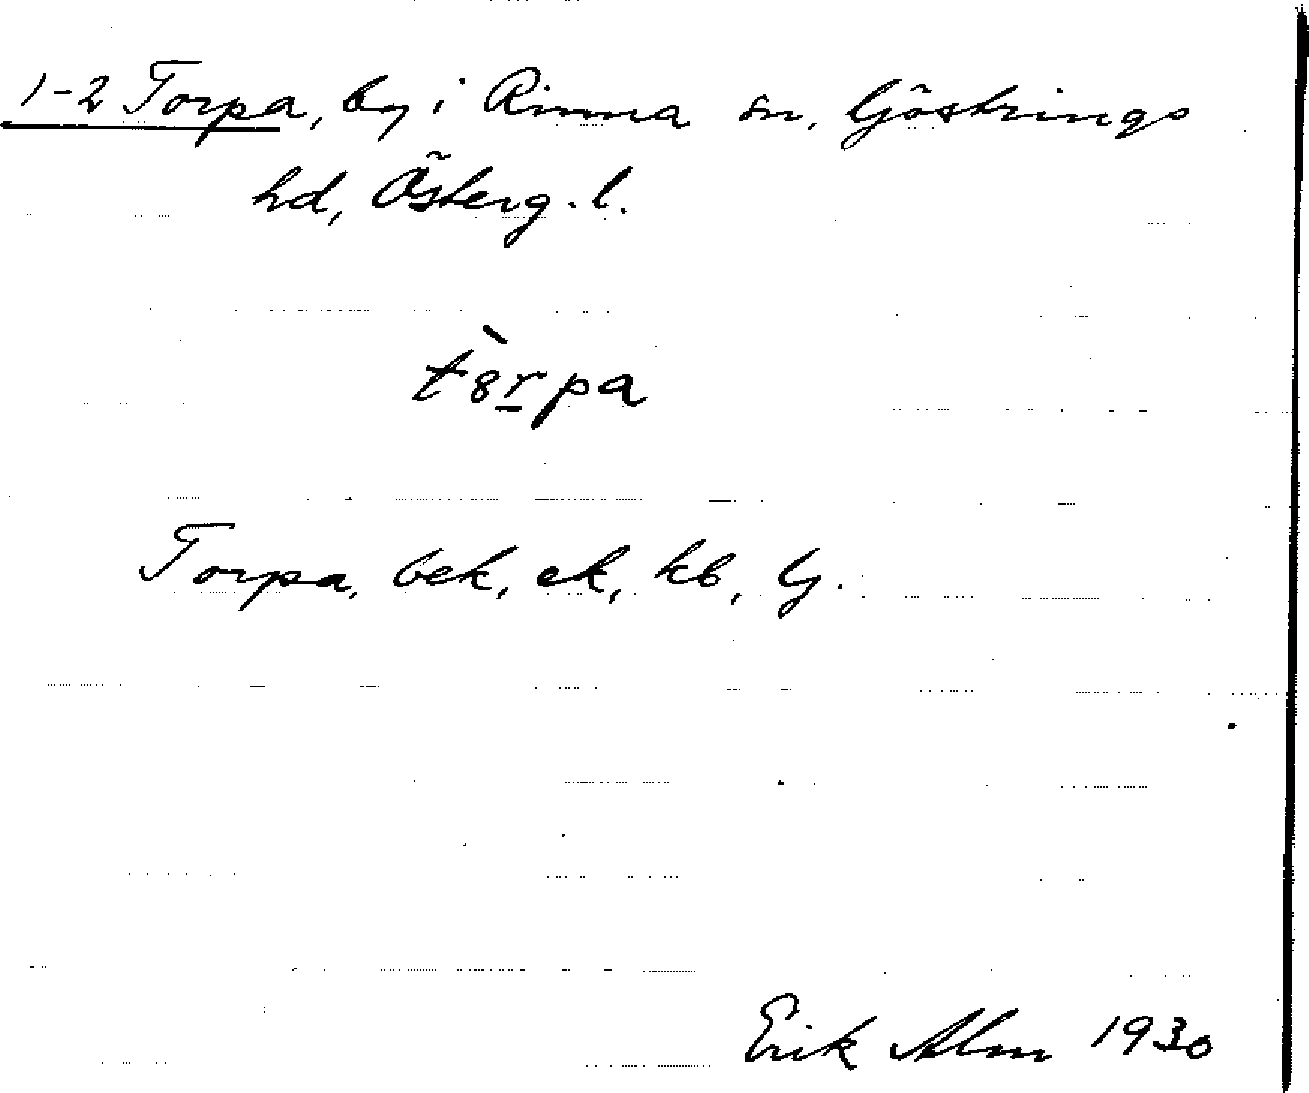 1-2 Torpa, by i Rinna sn, Göstrings
hd, Österg. l.
t8̀r̲pa
Torpa, bek, ek, kb, Gj.
Erik Alm 1930